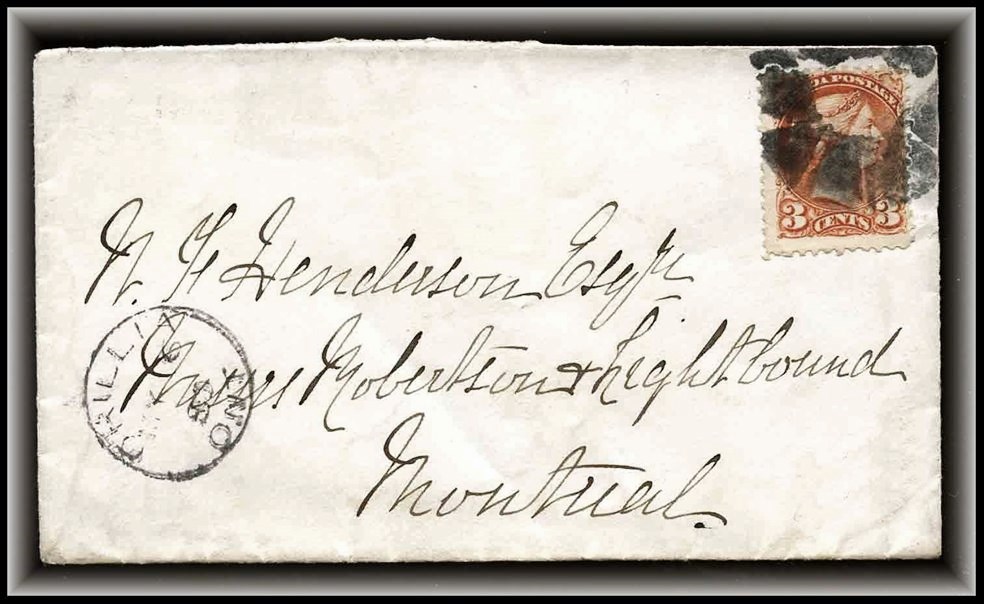 DA POSTAGE
3 CENTS 3
N. H Henderson Esqr
Messrs Robertson & Lightbound
Montreal.
ORILLIA
ONT